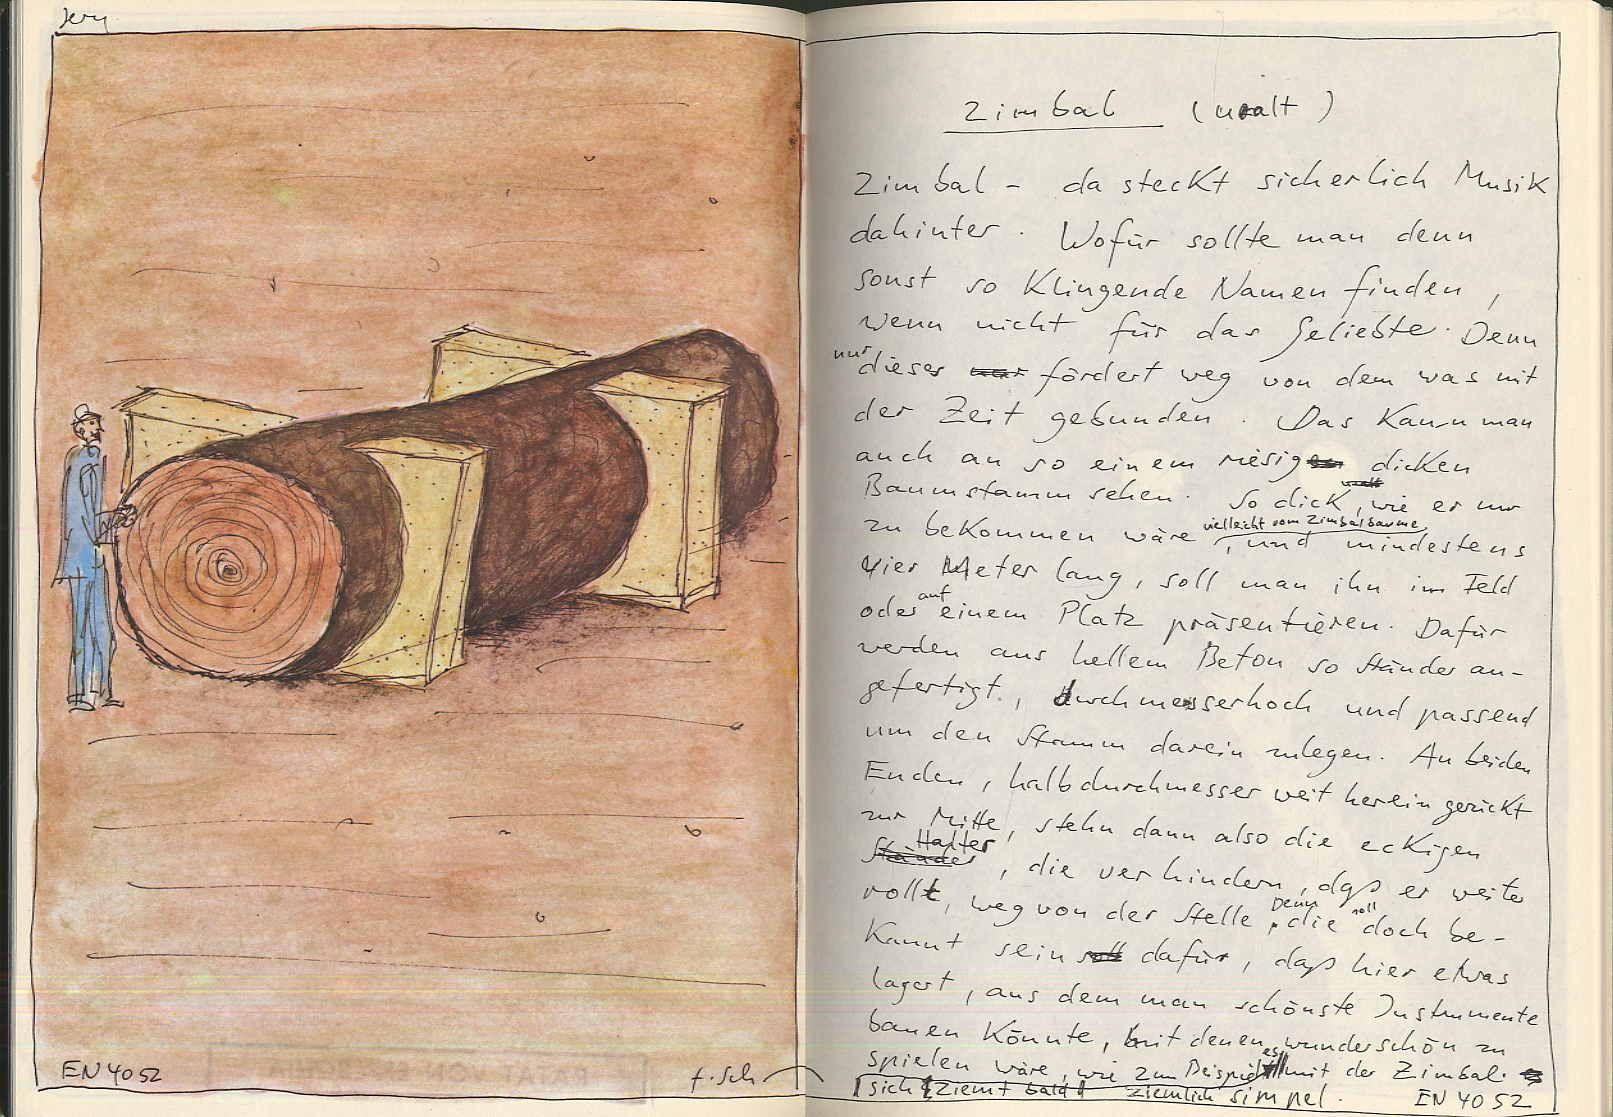 EN 4052
f. Sch
Zimbal (uralt)
Zimbal - da steckt sicherlich Musik
dahinter. Wofür sollte man denn
sonst so klingende Namen finden,
wenn nicht für das Geliebte. Denn
nur dieses fördert weg von dem was mit
der Zeit gebunden. Das kann man
auch an so einem riesig dicken
Baumstamm sehen. So dick, wie er nur
zu bekommen wäre, vielleicht vom Zimbalbaume, und mindestens
vier Meter lang, soll man ihn im Feld
oder auf einem Platz präsentieren. Dafür
werden aus hellem Beton so Ständer an-
gefertigt, durchmesserhoch und passend
um den Stamm darein zulegen. An beiden
Enden, halbdurchmesser weit herein gerückt
zur Mitte, stehn dann also die eckigen
Halter, die verhindern, daß er weiter
rollt, weg von der Stelle. Denn die soll doch be-
kannt sein dafür, daß hier etwas
lagert, aus dem man schönste Instrumente
bauen könnte, mit denen es wunderschön zu
spielen wäre, wie zum Beispiel mit der Zimbal.
sich ziemt bald ziemlich simpel.
EN 4052